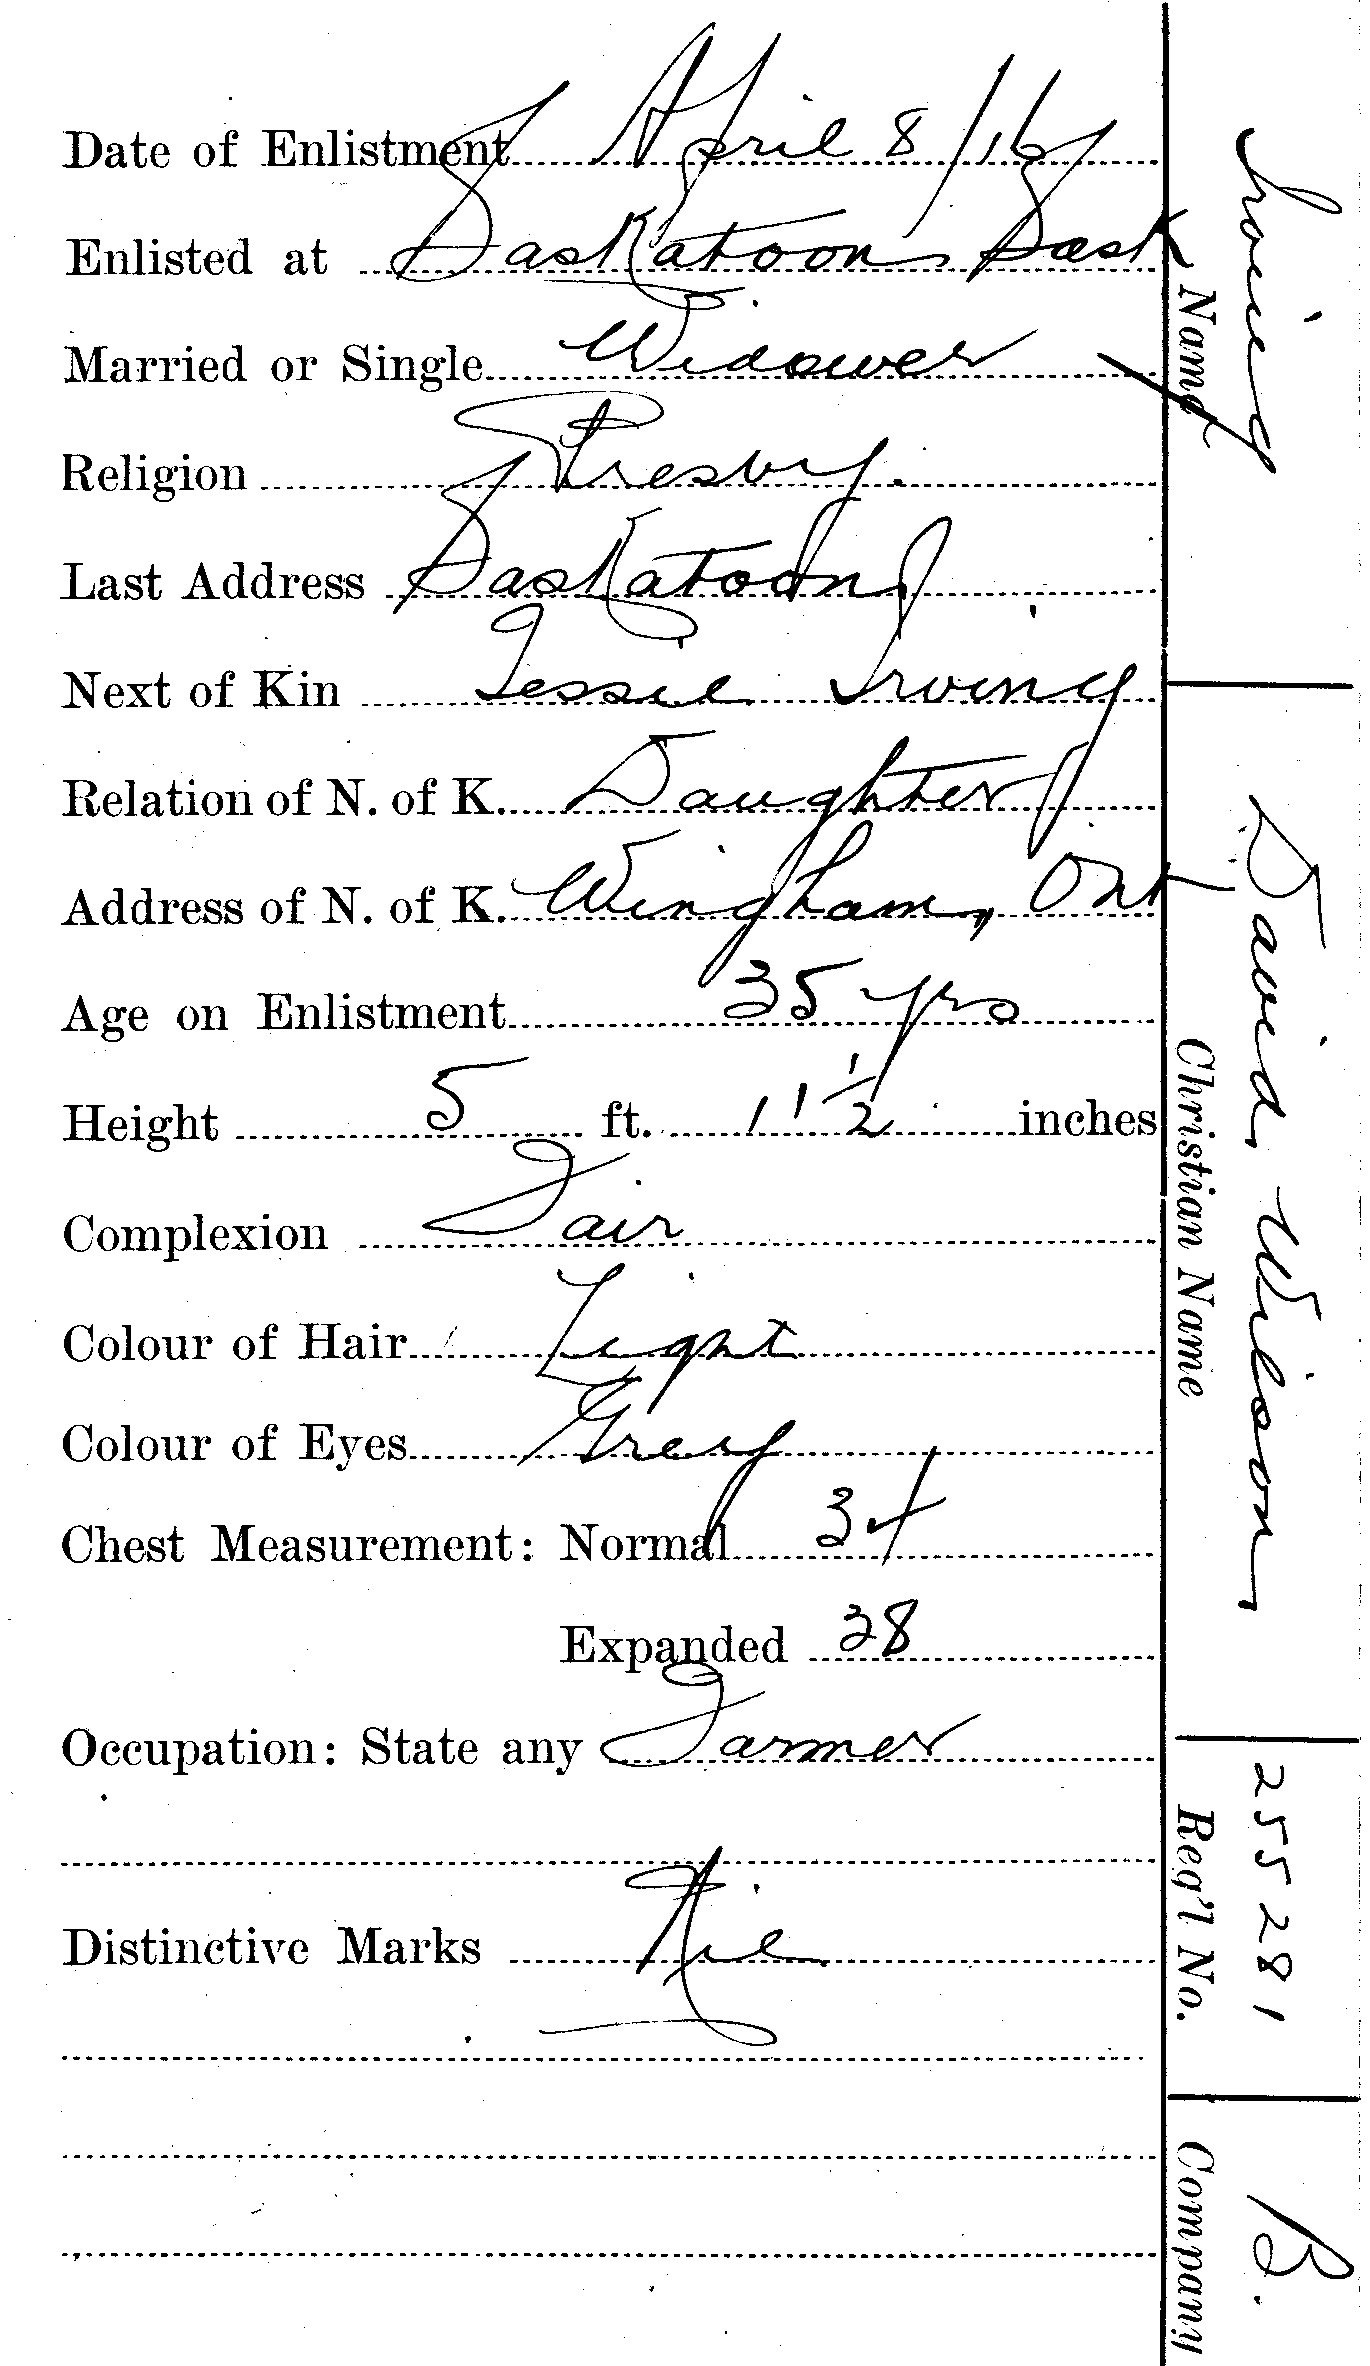 Date of Enlistment April 8/16
Enlisted at Saskatoon Sask
Married or Single Widower
Religion Presby.
Last Address Saskatoon
Next of Kin Jessie Irving
Relation of N. of K. Daughter
Address of N. of K. Wingham, Ont
Age on Enlistment 35 yrs
Height 5 ft. 11 1/2 inches
Complexion Fair
Colour of Hair Light
Colour of Eyes Grey
Chest Measurement: Normal 34
Expanded 38
Occupation: State any Farmer
Distinctive Marks Nil
Irving
Name
David Wilson
Christian Name
255281
Reg'l No.
B.
Company